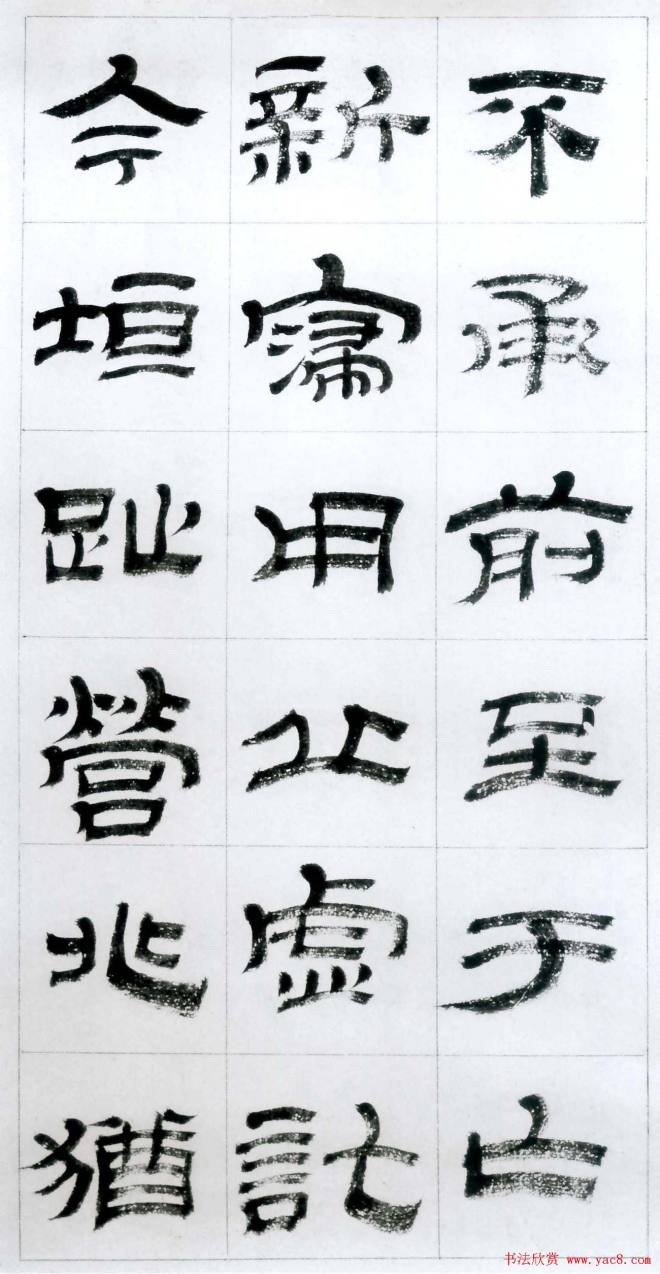 不承前至于亡
新寖用丘虛訖
今垣趾營兆猶
书法欣赏 www.yac8.com